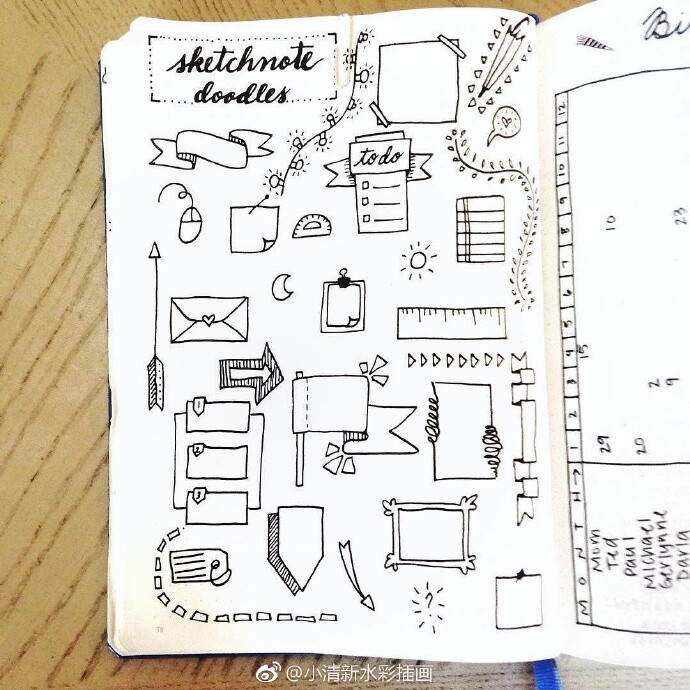 sketchnote
doodles
to do
1
2
3
?
38
Bi
MONTH → 1 2 3 4 5 6 7 8 9 10 11 12
15
Mom 29
Ted 10
Paul 20
Michael 2
Gerlynne 9
Darla 23
@小清新水彩插画